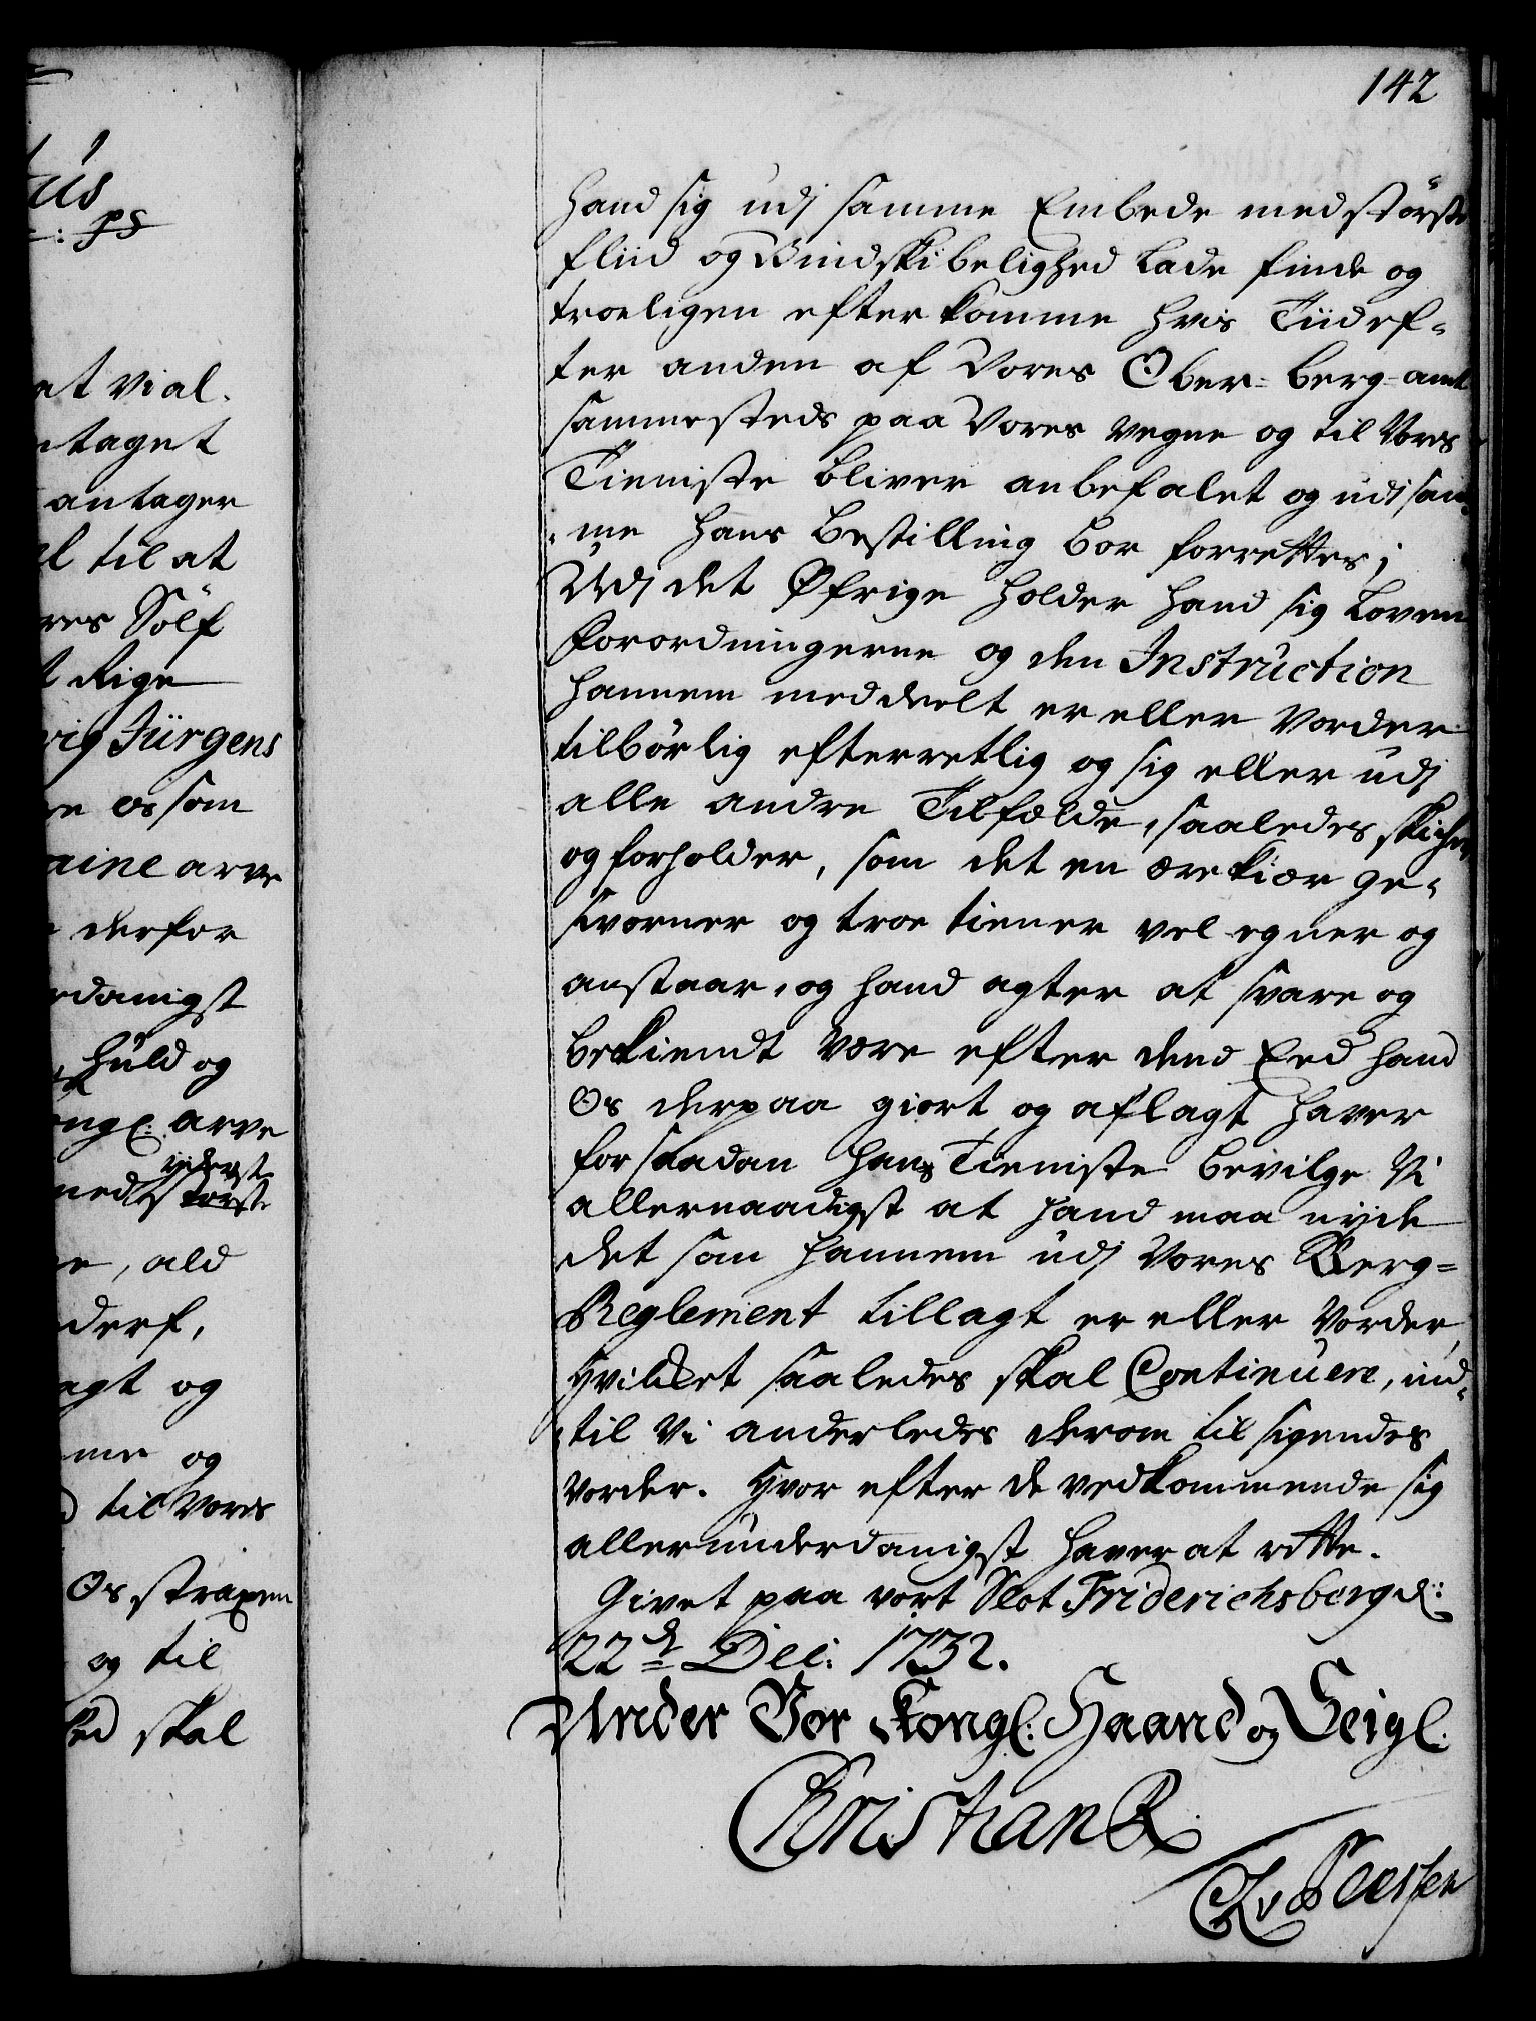 142
hand sig udj samme Embede med störste
fliid og Vindskibelighed lade finde og
troeligen efterkomme hvis Tiid ef-
ter anden af Vores Ober-berg-amt
sammesteds paa Vores vegne og til Vores
Tieniste bliver anbefalet og udj sam-
me hans bestilling bör forrettes;
Udj det Øfrige holder hand sig Loven
forordningerne og den Instruction
hannem meddeelt er eller vorder
tilbörlig efterretlig og sig eller udj
alle andre Tilfælde, saaledes skicher
og forholder, som det en ærekiær ge-
svorner og troe tiener vel egner og
anstaar, og hand agter at svare og
bekiendt være efter dend Eed hand
Os derpaa giort og aflagt haver
for saadan hans Tieniste bevilge Vi
allernaadigst at hand maa nÿde
det som hannem udj Vores Berg-
Reglement tillagt er eller vorder,
hvilcket saaledes skal Continuere, ind-
til Vi anderledes derom til sigendes
vorder. hvor efter de vedkommende sig
allerunderdanigst haver at rette.
Givet paa vort Slot Friderichsberg d:
22d Dec: 1732.
Under Vor Kongl: Haand og Seigl:
Christian R
et vi al-
ntaget
antager
l til at
res Sölf
t Rige
vig Jürgens
re os som
aine arve
derfor
rdanigst
huld og
ongl: arve
yderste
med störste
e, ald
derf,
agt og
me og
til Vores
Os straxen
og til
ed skal